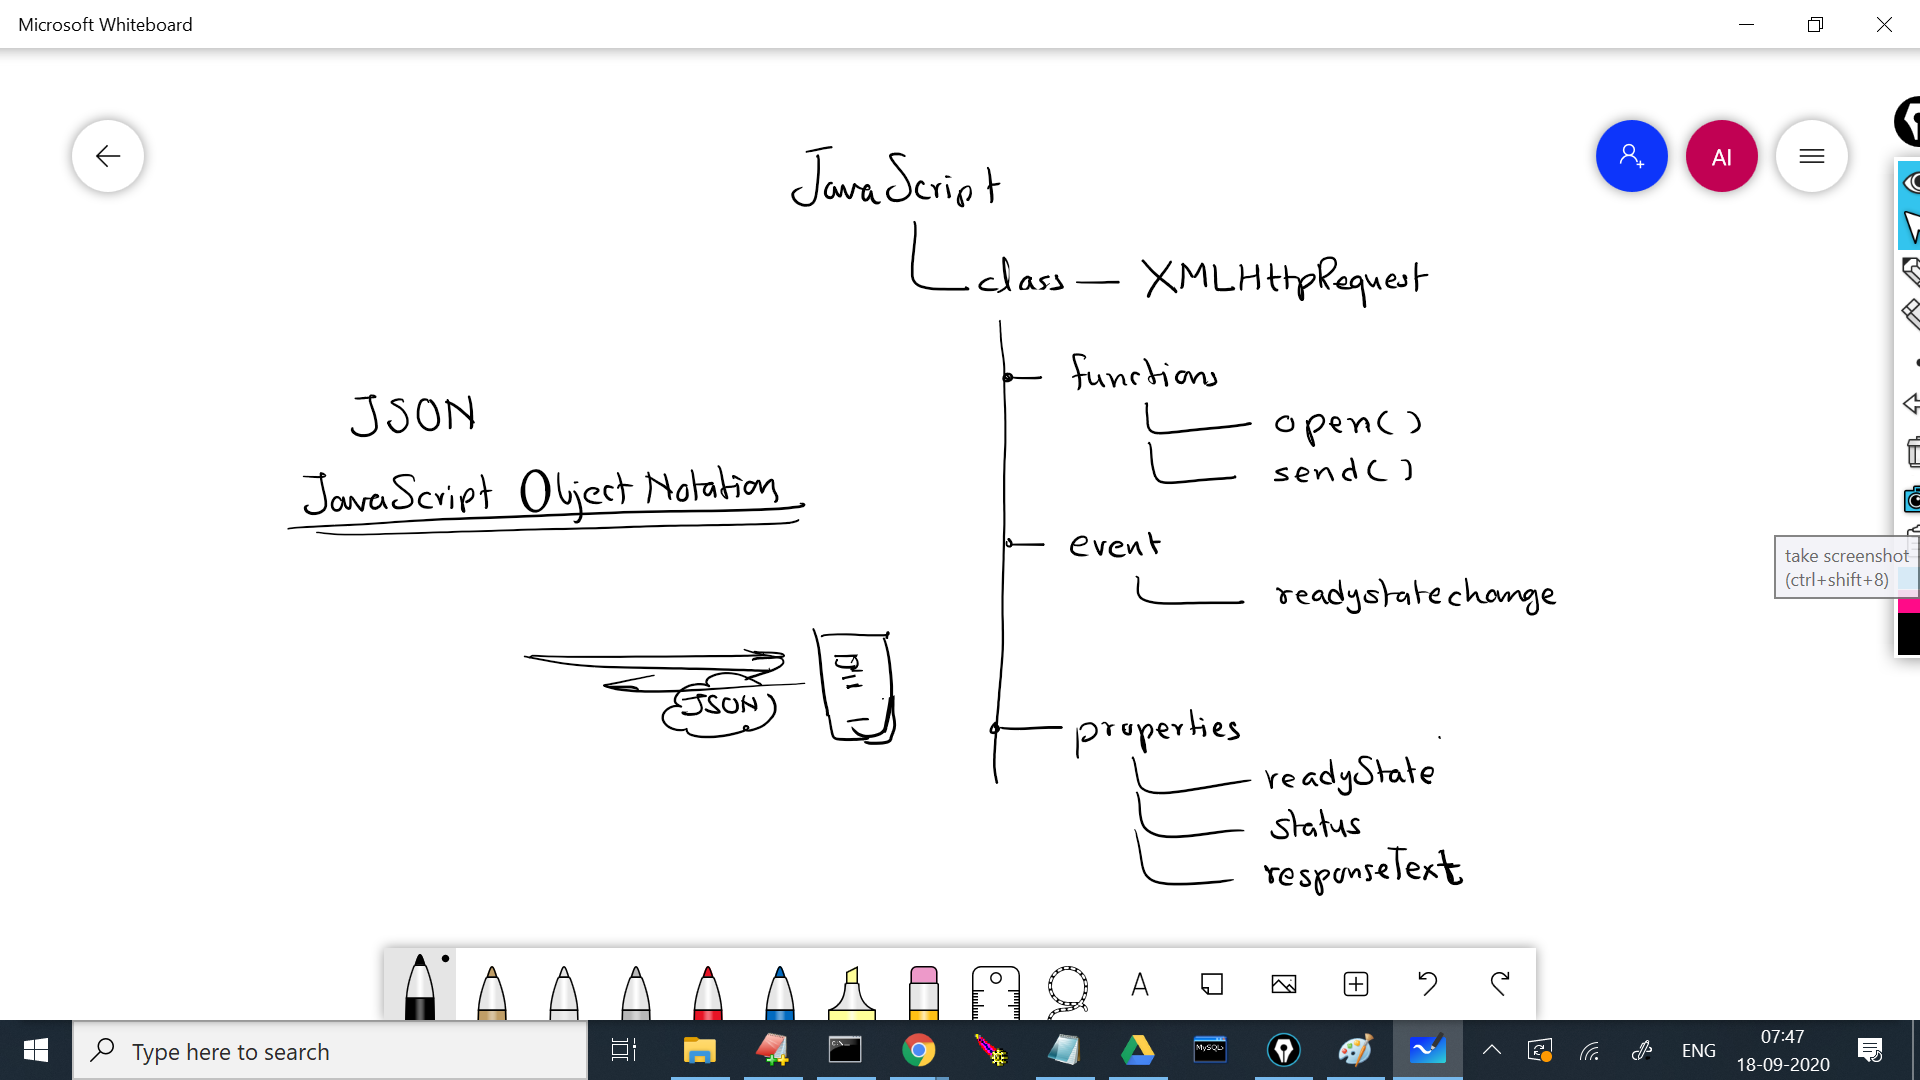 Microsoft Whiteboard
AI
JavaScript
class — XMLHttpRequest
functions
open()
send()
event
readystatechange
properties
readyState
status
responseText
JSON
JavaScript Object Notation
JSON
take screenshot
(ctrl+shift+8)
A
Type here to search
C:\.
MySQL
ENG
07:47
18-09-2020